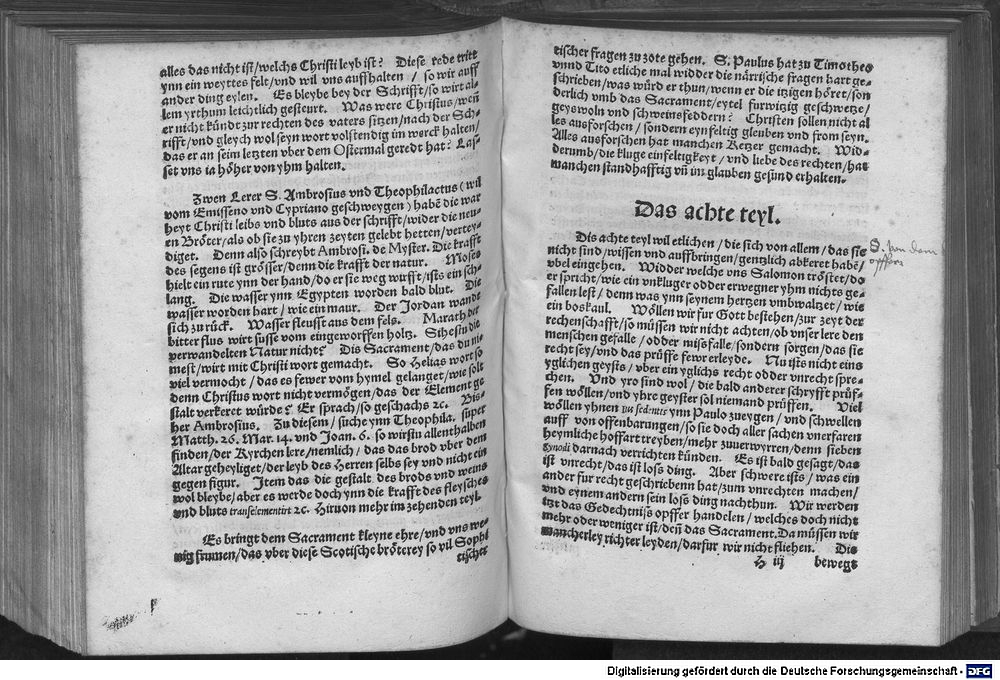 alles das nicht ist/welchs Christi leyb ist? Diese rede tritt
ynn ein weyttes felt/vnd wil vns auffhalten / so wir auff
ander ding eylen. Es bleybe bey der Schrifft/so wirt al⸗
lem yrthum leichtlich gesteurt. Was were Christus/weñ
er nicht kündt zur rechten des vaters sitzen/nach der Sch⸗
rifft/vnd gleych wol seyn wort volstendig im werck halten/
das er an seim letzten vber dem Ostermal geredt hat? Las⸗
set vns ia höher von yhm halten.
Zwen Lerer S. Ambrosius vnd Theophilactus (wil
vom Emisseno vnd Cypriano geschweygen) habē die war
heyt Christi leibs vnd bluts aus der schrifft/wider die neu⸗
en Bröter/als ob sie zu yhren zeyten gelebt hetten/vertey⸗
diget. Denn also schreybt Ambrosi. de Myster. Die krafft
des segens ist grösser/denn die krafft der natur. Moses
hielt ein rute ynn der hand/do er sie weg wurfft/ists ein sch⸗
lang. Die wasser ynn Egypten worden bald blut. Die
wasser worden hart / wie ein maur. Der Jordan wand
sich zu rück. Wasser fleusst aus dem fels. Marath der
bitter flus wirt susse vom eingeworffen holtz. Sihestu die
verwandelten Natur nicht? Dis Sacrament/das du ni⸗
mest/wirt mit Christi wort gemacht. So Helias wort so
viel vermocht / das es fewer vom hymel gelanget/wie solt
denn Christus wort nicht vermögen/das der Element ge
stalt verkeret würde? Er sprach/so geschachs ꝛc. Bis⸗
her Ambrosius. Zu diesem / suche ynn Theophila. super
Matth. 26. Mar. 14. vnd Joan. 6. so wirstu allenthalben
finden/der Kyrchen lere/nemlich / das das brod vber dem
Altar geheyliget/der leyb des Herren selbs sey vnd nicht ein
gegen figur. Item das die gestalt des brods vnd weins
wol bleybe/aber es werde doch ynn die krafft des fleysches
vnd bluts transelementirt ꝛc. Hiruon mehr im zehenden teyl.
Es bringt dem Sacrament kleyne ehre/vnd vns we⸗
nig frumen/das vber diese Scotische bröterey so vil Sophi
tischer
tischer fragen zu zote gehen. S. Paulus hat zu Timotheo
vnnd Tito etliche mal widder die närrische fragen hart ge⸗
schrieben/was würd er thun/wenn er die itzigen höret/son
derlich vmb das Sacrament/eytel furwitzig geschwetze/
geyswoln vnd schweinsfeddern? Christen sollen nicht al
les ausforschen / sondern eynfeltig gleuben vnd from seyn.
Alles ausforschen hat manchen Ketzer gemacht. Wid⸗
derumb/die kluge einfeltigkeyt / vnd liebe des rechten/hat
manchen standhafftig vñ im glauben gesund erhalten.
Das achte teyl.
Dis achte teyl wil etlichen / die sich von allem / das sie
nicht sind/wissen vnd auffbringen/gentzlich abkeret habē/
vbel eingehen. Widder welche vns Salomon tröstet/do
er spricht/wie ein vnkluger odder erwegner yhm nichts ge⸗
fallen lest / denn was ynn seynem hertzen vmbwaltzet / wie
ein boskaul. Wöllen wir fur Gott bestehen/zur zeyt der
rechenschafft/so müssen wir nicht achten/ob vnser lere den
menschen gefalle / odder misfalle/sondern sorgen/das sie
recht sey/vnd das prüffe fewr erleyde. Nu ists nicht eins
yglichen geysts / vber ein yglichs recht odder vnrecht spre⸗
chen. Vnd yro sind wol / die bald anderer schryfft prüf⸗
fen wöllen/vnd yhre geyster sol niemand prüffen. Viel
wöllen yhnen ius sedentis ynn Paulo zueygen / vnd schwellen
auff von offenbarungen/so sie doch aller sachen vnerfaren
heymliche hoffart treyben/mehr zuuerwyrren/denn sieben
synodi darnach verrichten künden. Es ist bald gesagt/das
ist vnrecht/das ist loss ding. Aber schwere ists / was ein
ander fur recht geschriebenn hat/zum vnrechten machen/
vnd eynem andern sein loss ding nachthun. Wir werden
itzt das Gedechtniss opffer handelen / welches doch nicht
mehr oder weniger ist/deñ das Sacrament. Da müssen wir
mancherley richter leyden/darfur wir nicht fliehen. Dis
H iij bewegt
Digitalisierung gefördert durch die Deutsche Forschungsgemeinschaft - DFG